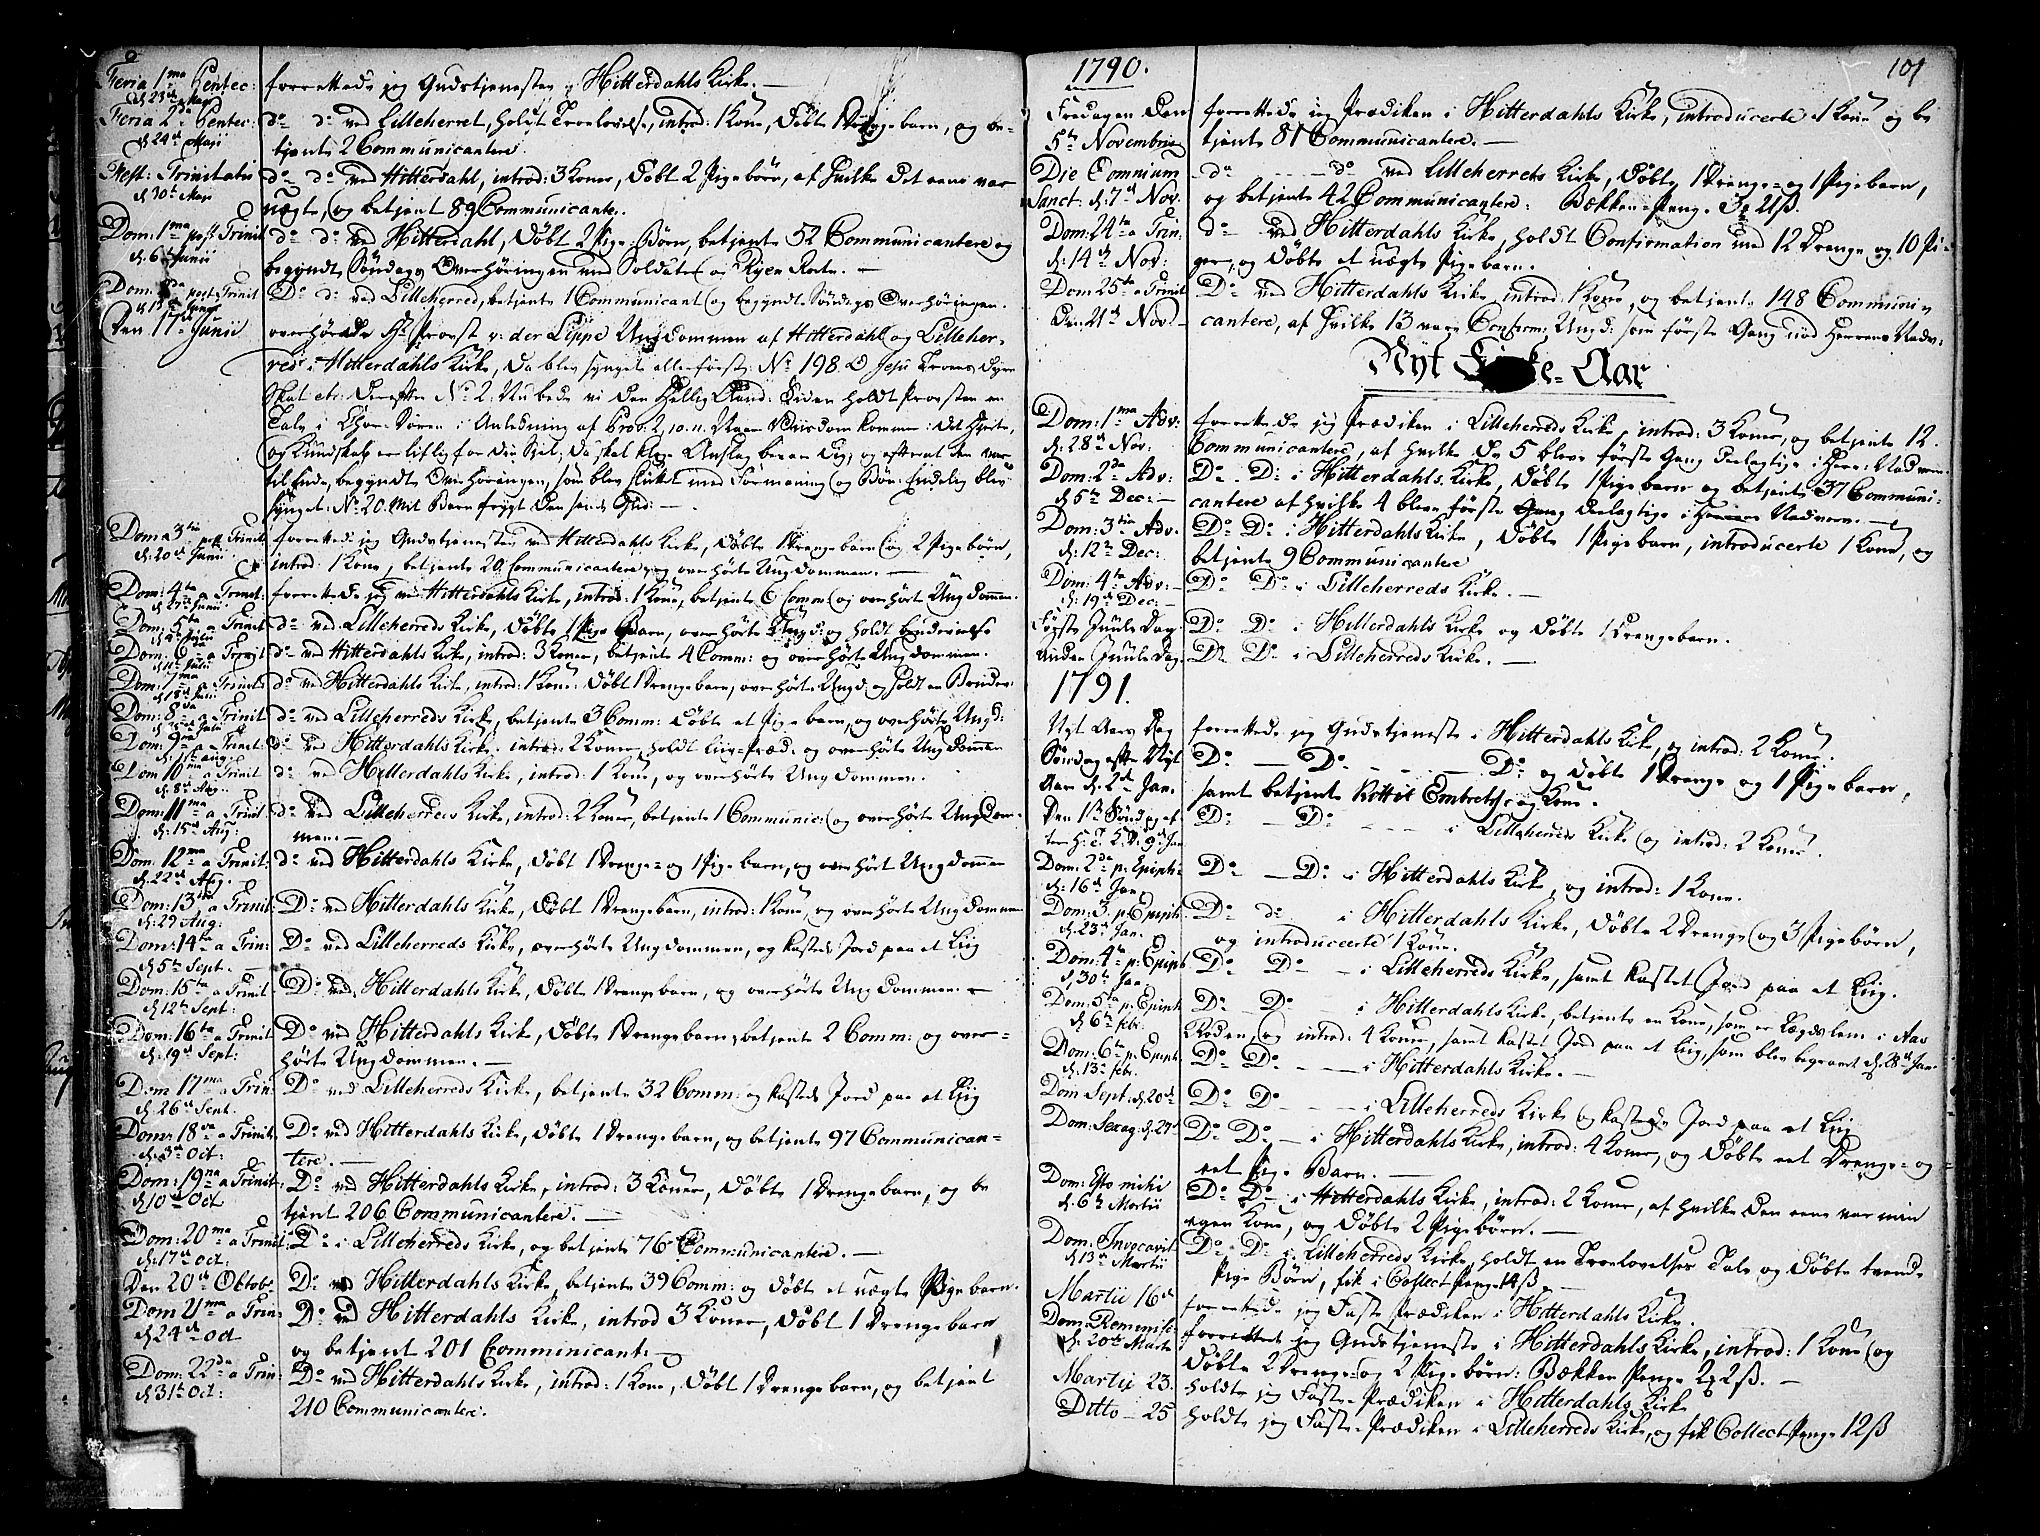 Feria 1ma Pentec: forrettede jeg Gudstjenesten i Hitterdahls Kirke. —
d. 23de Maji
Feria 2da Pentec: do do ved Lilleherret, holdt Trolovelse, introd: 1 Kone, døbte 1 Drenge barn, og be-
d. 24de Maji tjente 2 Communicantere.
Fest: Trinitatis do do ved Hitterdahl, introd: 3 Koner, døbt 2 Pigebørn, af hvilke det eene var
d. 30te Maji uægte, og betjent 89 Communicanter.
Dom: 1ma post Trinit do do ved Hitterdahl, døbt 2 Pige-Børn, betjente 52 Communicantere og
d. 6te Junii begyndt Søndags Overhøringen med Soldater
Dom: 2da post Trinit Do do ved Lilleherred, betjente 1 Communicant og begyndt Søndags Overhøringen.
d. 13de Junii
Den 17de Junii overhørede Hr Provst v: der Lippe Ungdommen af Hitterdahl og Lilleher-
red i Hitterdahls Kirke, da blev synget allerførst: No 198. O Jesu Troens Dyre
Skat etc: derefter No 2: Nu bede vi den Hellig Aand: Siden holdt Provsten en
Tale i Chor-Døren i Anledning af Prov. 2, 10. 11. Naar Viisdom kommer i det Hierte,
og Kundskab er liflig for din Siel; da skal kloge Anslag bevare dig, og efterat den var
til Ende, begyndte Overhøringen, som blev sluttet med Formaning og Bøn: Endelig blev
synget: No 20. Mit Barn frygt den sande Gud: —
Dom 3tia post Trinit forrettede jeg Gudstjenesten ved Hitterdahls Kirke, døbte 1 Drengebarn og 2 Pigebørn,
d. 20de Junii introd: 1 Kone, betjente 20 Communicantere, og overhørte Ungdommen. —
Dom: 4ta a Trinit: forrettede jeg ved Hitterdahls Kirke, introd: 1 Kone, betjente 6 Comm: og overhørte Ungdommen.
d. 27de Junii
Dom: 5ta a Trinit do ved Lilleherreds Kirke, døbte 1 Pige Barn, overhørte Ungd: og holdt
d. 4de Julii
Dom: 6ta a Trinit do ved Hitterdahls Kirke, introd: 3 Koner, betjente 4 Comm: og overhørte Ungdommen.
d. 11te Julii
Dom: 7ma a Trinit do ved Hitterdahls Kirke, introd: 1 Kone: døbt 1 Drengebarn, overhørte Ungd: og holdt en
d. 18de Julii
Dom: 8va a Trinit do ved Lilleherreds Kirke, betjente 3 Comm: døbte et Pigebarn, og overhørte Ungd:
Dom: 9na a Trinit. do ved Hitterdahls Kirke, introd: 2 Koner, holdt Liig-Præd: og overhørte Ungdommen
d. 1ste Aug:
Dom 10ma a Trinit do ved Hitterdahls Kirke, introd: 1 Kone, og overhørte Ungdommen.
d. 8de Aug.
Dom: 11ma a Trinit do ved Lilleherreds Kirke, introd: 2 Koner, betjente 1 Communic: og overhørte Ungdom-
d. 15de Aug: men. —
Dom: 12ma a Trinit. do ved Hitterdahls Kirke, døbt 1 Drenge- og 1 Pige barn, og overhørt Ungdommen
d. 22de Aug. —
Dom: 13tia a Trinit: Do ved Hitterdahls Kirke, døbt 1 Drengebarn, introd: 1 Kone, og overhørte Ungdommen
d. 29 Aug:
Dom: 14ta a Trin: Do ved Lilleherreds Kirke, overhørte Ungdommen, og kastede Jord paa et Liig
d. 5te Sept. —
Dom: 15ta a Trinit Do ved Hitterdahls Kirke, døbte 1 Drengebarn, og overhørte Ungdommen. —
d. 12te Sept:
Dom: 16ta a Trinit Do ved Hitterdahls Kirke, døbte 1 Drengebarn, betjente 2 Comm: og over-
d. 19de Sept: hørte Ungdommen. —
Dom 17ma a Trin: Do ved Lilleherreds Kirke, betjente 32 Comm: og kastede Jord paa et Liig
d. 26de Sept.
Dom: 18va a Trinit: Do ved Hitterdahls Kirke, døbte 1 Drengebarn, og betjente 97 Communican-
d. 3die Oct: tere. —
Dom: 19na a Trinit: Do ved Hitterdahls Kirke, introd: 3 Koner, døbte 1 Drengebarn, og be
d. 10de Oct tjent 206 Communicantere. —
Dom: 20ma a Trinit: Do i Lilleherreds Kirke, og betjente 76 Communicantere. —
d. 17de Oct:
Den 20de Oktobr Do ved Hitterdahls Kirke, betjente 39 Comm: og døbte et uægte Pigebarn.
Dom 21ma a Trin: Do ved Hitterdahls Kirke, introd 3 Koner, døbt 1 Drengebarn
d. 24de Oct og betjent 201 Comminicant: —
Dom: 22da a Trin: Do ved Hitterdahls Kirke, introd: 1 Kone, døbt 1 Drengebarn, og betjent
d. 31te Oct: 210 Communicantere.
1790. 101
Fredagen den forrettede jeg Prædiken i Hitterdahls Kirke, introducerte 1 Kone og be
5te Novembris tjente 81 Communicantere. —
Die Omnium do — do ved Lilleherreds Kirke, døbte 1 Drenge- og 1 Pigebarn,
Sanct: d. 7de Nov. og betjente 42 Communicantere: Bækken-Penge
Dom: 24ta a Trin: do ved Hitterdahls Kirke, holdt Confirmation med 12 Drenge og 10 Pi-
d: 14de Nov: ger, og døbte et uægte Pigebarn.
Dom 25ta a Trinit Do ved Hitterdahls Kirke introd: 1 Kone, og betjente 148 Communi-
Den 21de Nov: cantere, af hvilke 13 var Confirm: Ungd: som første Gang nød Herrens Nadv:
Nyt Kirke-Aar
Dom: 1ma Adv: forrettede jeg Prædiken i Lilleherreds Kirke, introd: 3 Koner, og betjente 12
d: 28de Nov: Communicantere, af hvilke de 5 bleve første Gang deelagtige i Herr: Nadvere.
Dom: 2da Adv: Do. Do: i Hitterdahls Kirke, døbte 1 Pigebarn og betjente 37 Communi-
d. 5te Dec: — cantere af hvilke 4 bleve første Gang deelagtige i Herrens Nadvere. —
Dom: 3tia Adv: Do: Do: i Hitterdahls Kirke, døbte 1 Pigebarn, introducerte 1 Kone, og
d: 12te Dec: betjente 9 Communicantere
Dom: 4ta Adv: — Do: Do: i Lilleherreds Kirke. —
d: 19de Dec: —
Første Juule Dag Do: Do: i Hitterdahls Kirke og døbte 1 Drengebarn.
Anden Juule Dag. Do: Do: i Lilleherreds Kirke. —
1791.
Nyt Aars Dag forrettede jeg Gudstjeneste i Hitterdahls Kirke, og introd: 2 Koner.
Søndag efter Nyt Do: — Do: — Do: og døbte 1 Drenge og 1 Pigebarn,
Aar d: 2de Jan. samt betjente Kittil Embretss: og Kone.
Den 1ste Søndag ef- Do: — Do: — i Lilleherreds Kirke og introd: 2 Koner.
ter H. 3 K. D: 9de Jan
Dom: 2da p: Epiph: Do: — Do: i Hitterdahls Kirke, og introd: 1 Kone.
d: 16de Jan.
Dom: 3. p: Epiph: Do: do: i Hitterdahls Kirke, døbte 2 Drenge og 3 Pigebørn,
d: 23de Jan. og introducerte 1 Kone.
Dom: 4ta p: Epiph Do: Do — i Lilleherreds Kirke, samt kastet Jord paa et Liig.
d. 30te Jan.
Dom: 5ta p: Epiph Do: Do: i Hitterdahls Kirke, betjente en Kone, som er Lægdslem i Aas
d: 6te febr. Roden, og introd: 4 Koner, samt kastet Jord paa et Liig, som blev begravet d. 28de Jan.
Dom: 6ta p: Epiph: Do: Do: — i Hitterdahls Kirke. —
d. 13de febr.
Dom Sept: d. 20de Do: Do: — i Lilleherreds Kirke og kastede Jord paa et Liig
Dom: Sexag: d. 27de Do: Do: — i Hitterdahls Kirke, introd: 4 Koner, og døbte eet Drenge- og
eet Pige Barn. —
Dom: Esto mihi Do: Do: i Hitterdahls Kirke, introd: 2 Koner, af hvilke den eene var min
d. 6te Martii egen Kone, og døbte 2 Pigebørn. —
Dom: Invocavit Do: Do: i Lilleherreds Kirke, holdt en Trolovelses Tale og døbte tvende
d. 13de Martii Pige Børn, fik i Collect Penge 14 ß —
Martii 16de forrettede jeg Faste Prædiken i Hitterdahls Kirke.
Dom: Reminisc: forrettet jeg Gudstjeneste i Hitterdahls Kirke, introd: 1 Kone og
d. 20de Martii døbte 2 Drenge- og 2 Pige børn: Bækken Penge 2 ß. —
Martii 23. holdt jeg Faste-Prædiken i Hitterdahls Kirke
Ditto — 25 holdte jeg Faste-Prædiken i Lilleherreds Kirke, og fik Collect Penge 12 ß